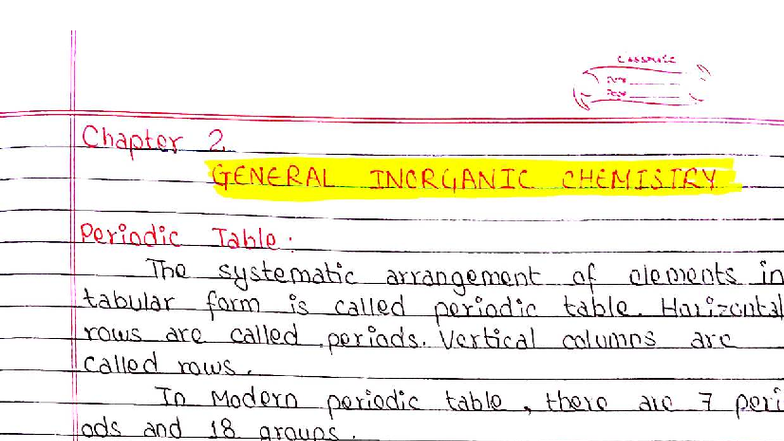 classmate
Date
Page
Chapter 2
GENERAL INORGANIC CHEMISTRY
Periodic Table.
The systematic arrangement of elements in
tabular form is called periodic table. Horizontal
rows are called periods. Vertical columns are
called rows.
In Modern periodic table, there are 7 peri
ods and 18 groups.